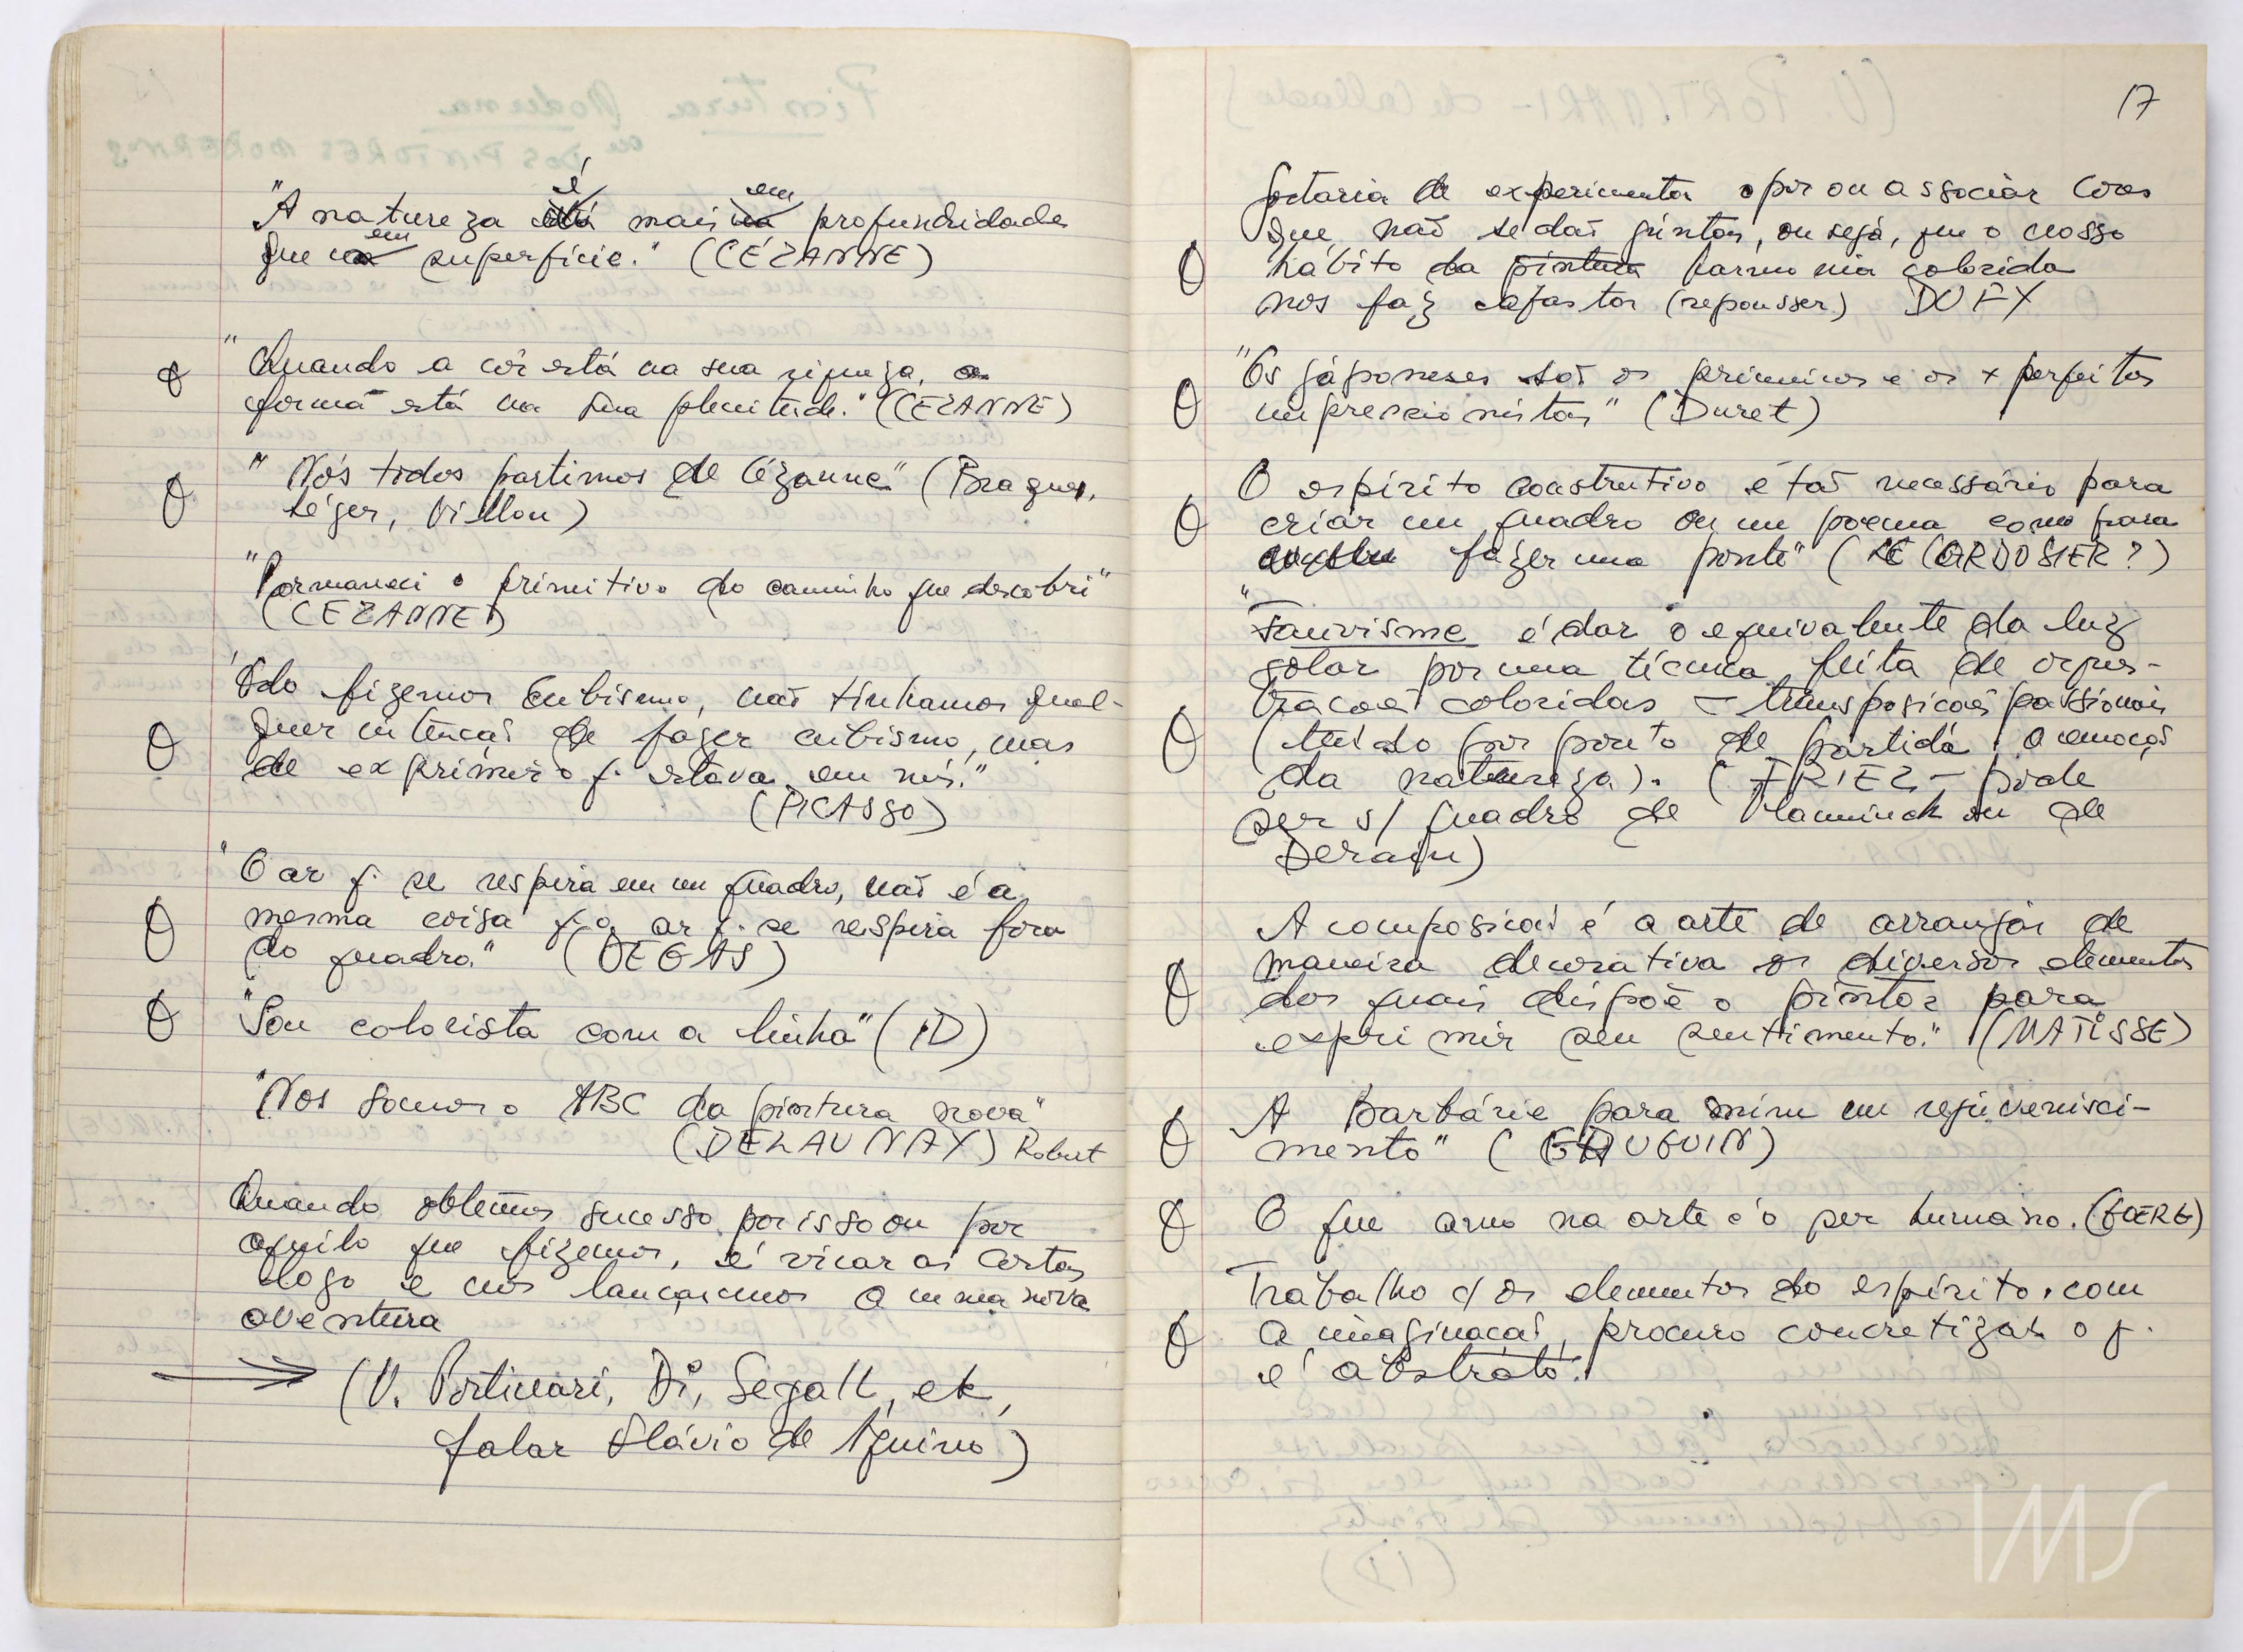 "A natureza é mais em profundidade
que em superfície." (CÉZANNE)
" Quando a côr está na sua riqueza, a
forma está na sua plenitude." (CÉZANNE)
" Nós todos partimos de Cézanne" (Braque,
Léger, Villon)
"Permaneci o primitivo do caminho que descobri"
(CÉZANNE)
"Qdo fizemos Cubismo, não tinhamos qual-
quer intenção de fazer cubismo, mas
de exprimir o q. estava em nós."
(PICASSO)
"O ar q. se respira em um quadro, não é a
mesma coisa q. o ar q. se respira fora
do quadro." (DEGAS)
"Sou colorista com a linha" (ID)
"Nós somos o ABC da pintura nova"
(DELAUNAY) Robert
Quando obtemos sucesso por isso ou por
aquilo que fizemos, é virar as costas
logo e nos lançarmos a uma nova
aventura
(V. Portinari, Di, Segall, etc,
falar Flávio de Aquino)
17
Gostaria de experimentar opor ou associar cores
que não se dão juntas, ou seja, que o nosso
hábito da pintura harmonia colorida
nos faz afastar (repousser) DUFY
"Os japoneses são os primeiros e os + perfeitos
impressionistas" (Duret)
O espírito construtivo é tão necessário para
criar um quadro ou um poema como para
fazer uma ponte" (LE CORBUSIER?)
"Fauvisme é dar o equivalente da luz
solar por uma técnica feita de orques-
trações coloridas – transposições passionais
(tendo por ponto de partida a emoção
da natureza). (FRIEZ – pode
ser s/ quadro de Vlaminck ou de
Derain)
A composição é a arte de arranjar de
maneira decorativa os diversos elementos
dos quais dispõe o pintor para
exprimir seu sentimento." (MATISSE)
A Barbárie para mim um rejuvenisci-
mento" (GAUGUIN)
O que amo na arte é o ser humano. (GOERG)
Trabalho c/ os elementos do espírito, com
a imaginação, procuro concretizar o q.
é abstrato."
IMS